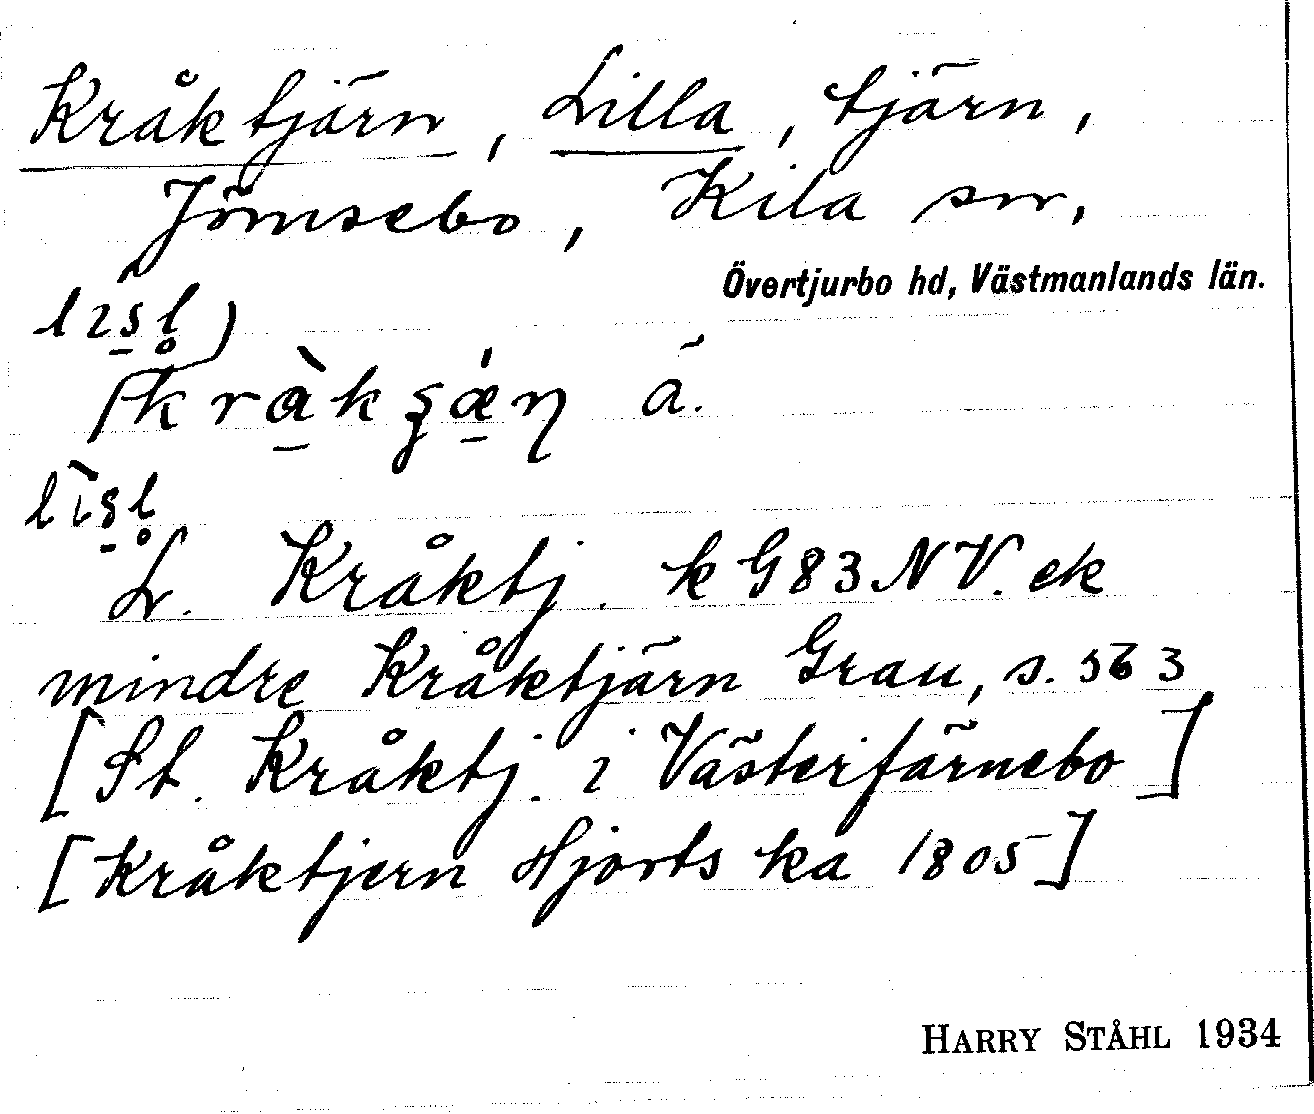 Kråktjärn, Lilla, tjärn,
Jömsebo, Kila sn,
Övertjurbo hd, Västmanlands län.
L. Kråktj. k G83NV. ek
mindre Kråktjärn Grau, s. 563
[St. Kråktj. i Västerfärnebo]
[Kråktjern Hjorts ka 1805]
HARRY STÅHL 1934